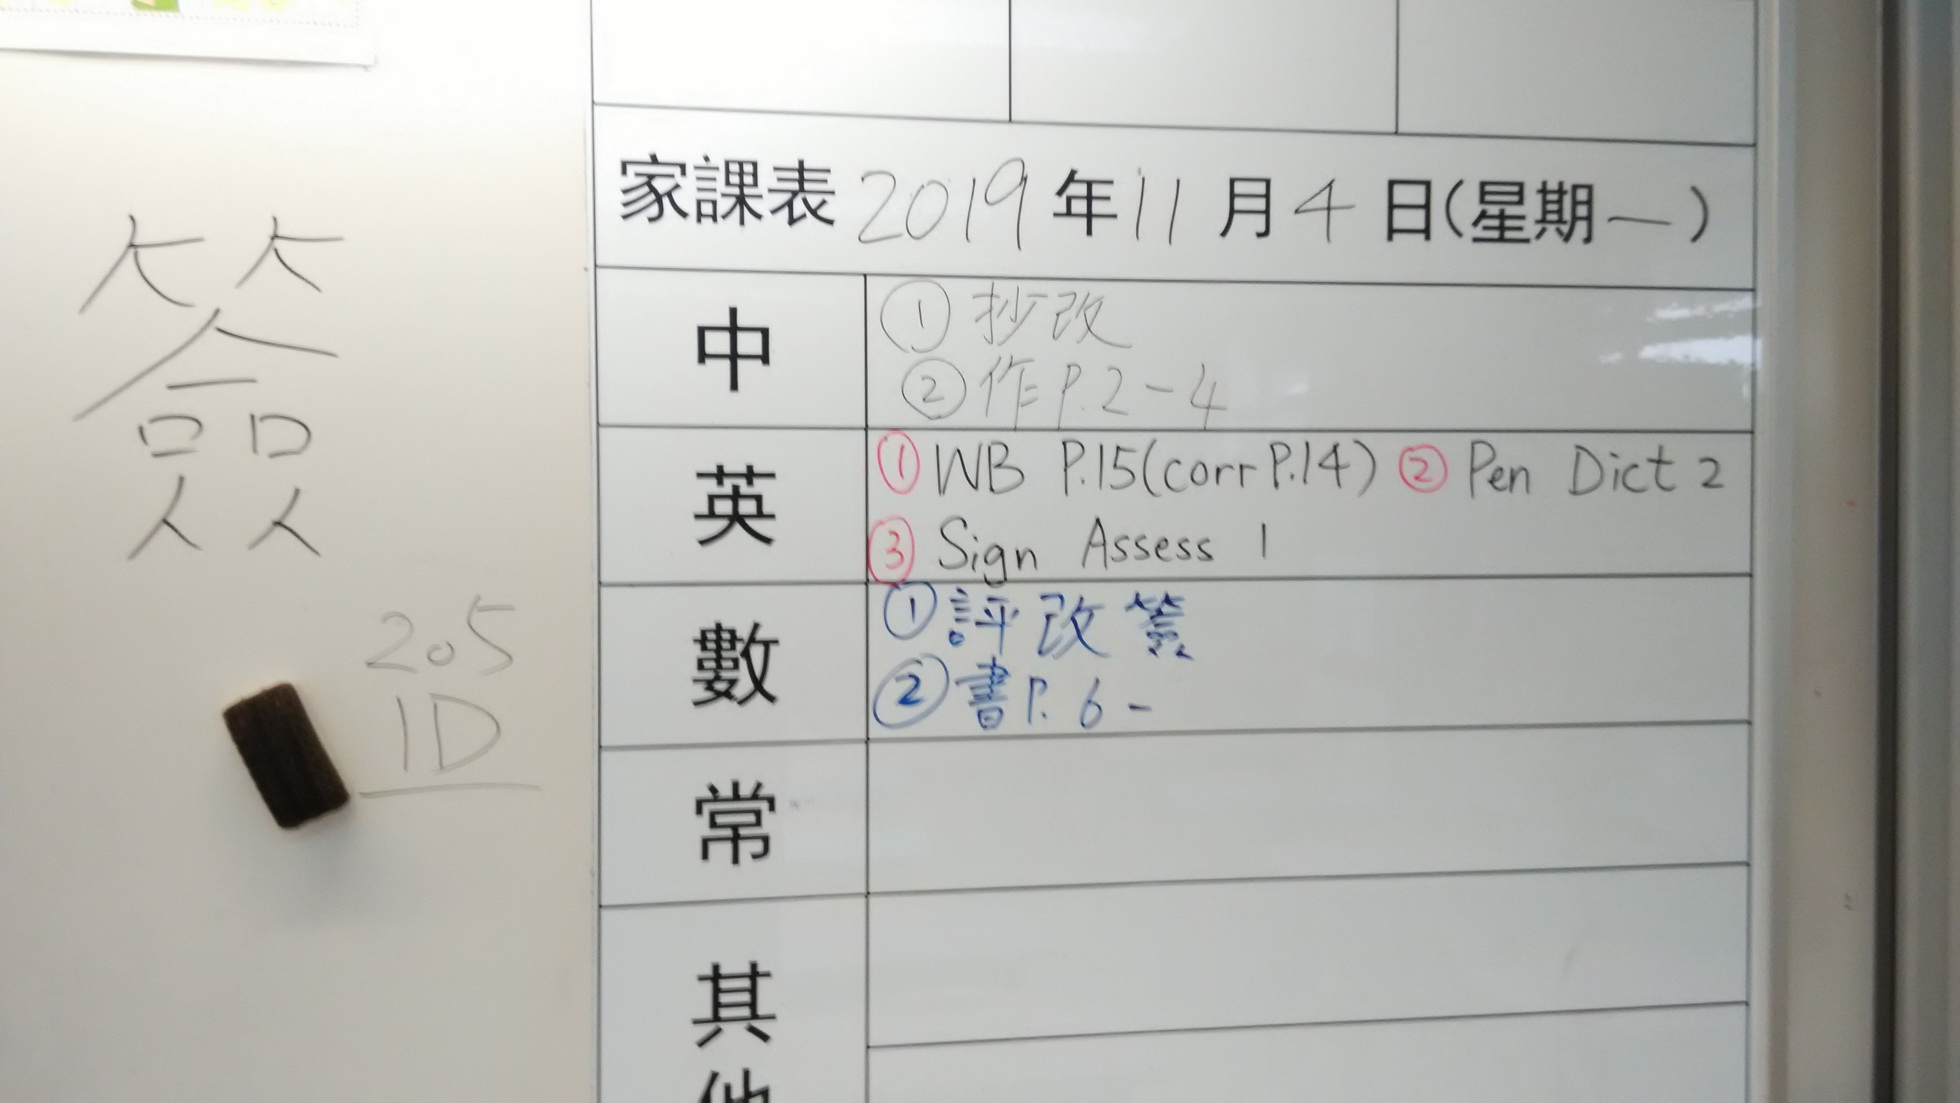 家課表 2019年11月4日(星期一)
中
① 抄改
② 作P.2-4
英
① WB P.15(corr P.14) ② Pen Dict 2
③ Sign Assess 1
數
① 評改簽
② 書P.6-
常
其他
簽
205
1D